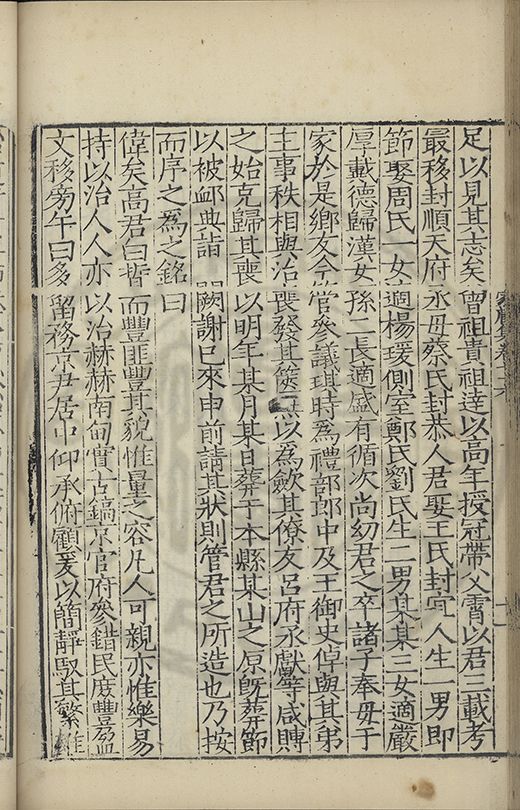 足以見其志矣曾祖貴祖達以高年授冠帶父霄以君三載考
最移封順天府丞母蔡氏封恭人君娶王氏封宜人生一男即
節娶周氏一女適楊瑗側室鄭氏劉氏生二男某某三女適嚴
厚載德歸漢女孫二長適盛有循次尚幼君之卒諸子奉母于
家於是鄉友今管參議琪時為禮部郎中及王御史倬與其弟
主事秩相與治喪發其篋無以為歛其僚友呂府丞獻等咸賻
之始克歸其喪以明年某月某日葬于本縣某山之原旣葬節
以被卹典詣 闕謝巳來申前請其狀則管君之所造也乃按
而序之為之銘曰
偉矣高君白晳而豐匪豐其貌惟量之容凡人可親亦惟樂易
持以治人人亦以治赫赫南甸實古鎬京官府參錯民庶豐盈
文移旁午曰多留務京尹居中仰承俯顧爰以簡靜馭其繁